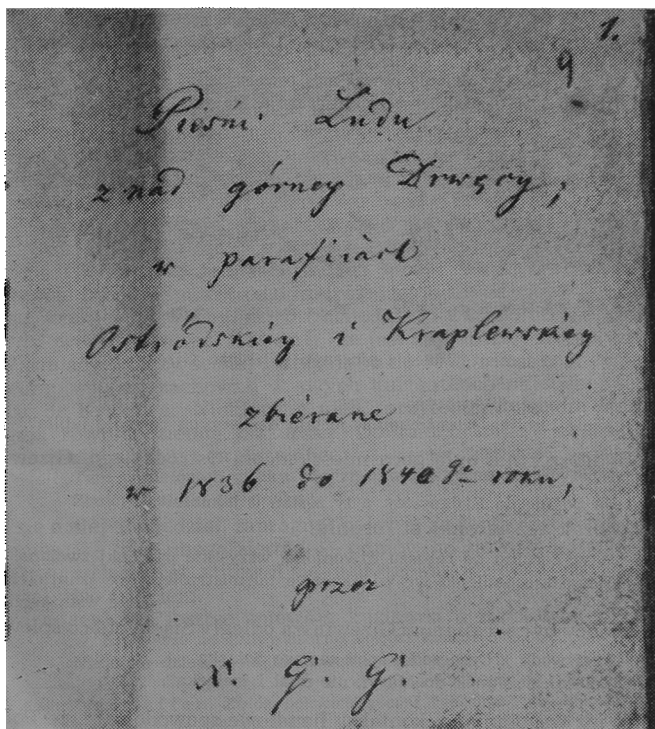 1.
9
Pieśni Ludu
z nad górney Drwęcy,
w parafiiach
Ostródskiéy i Kraplewskiéy
zbiérane
w 1836 do 1840 go roku,
przez
X. G. G.